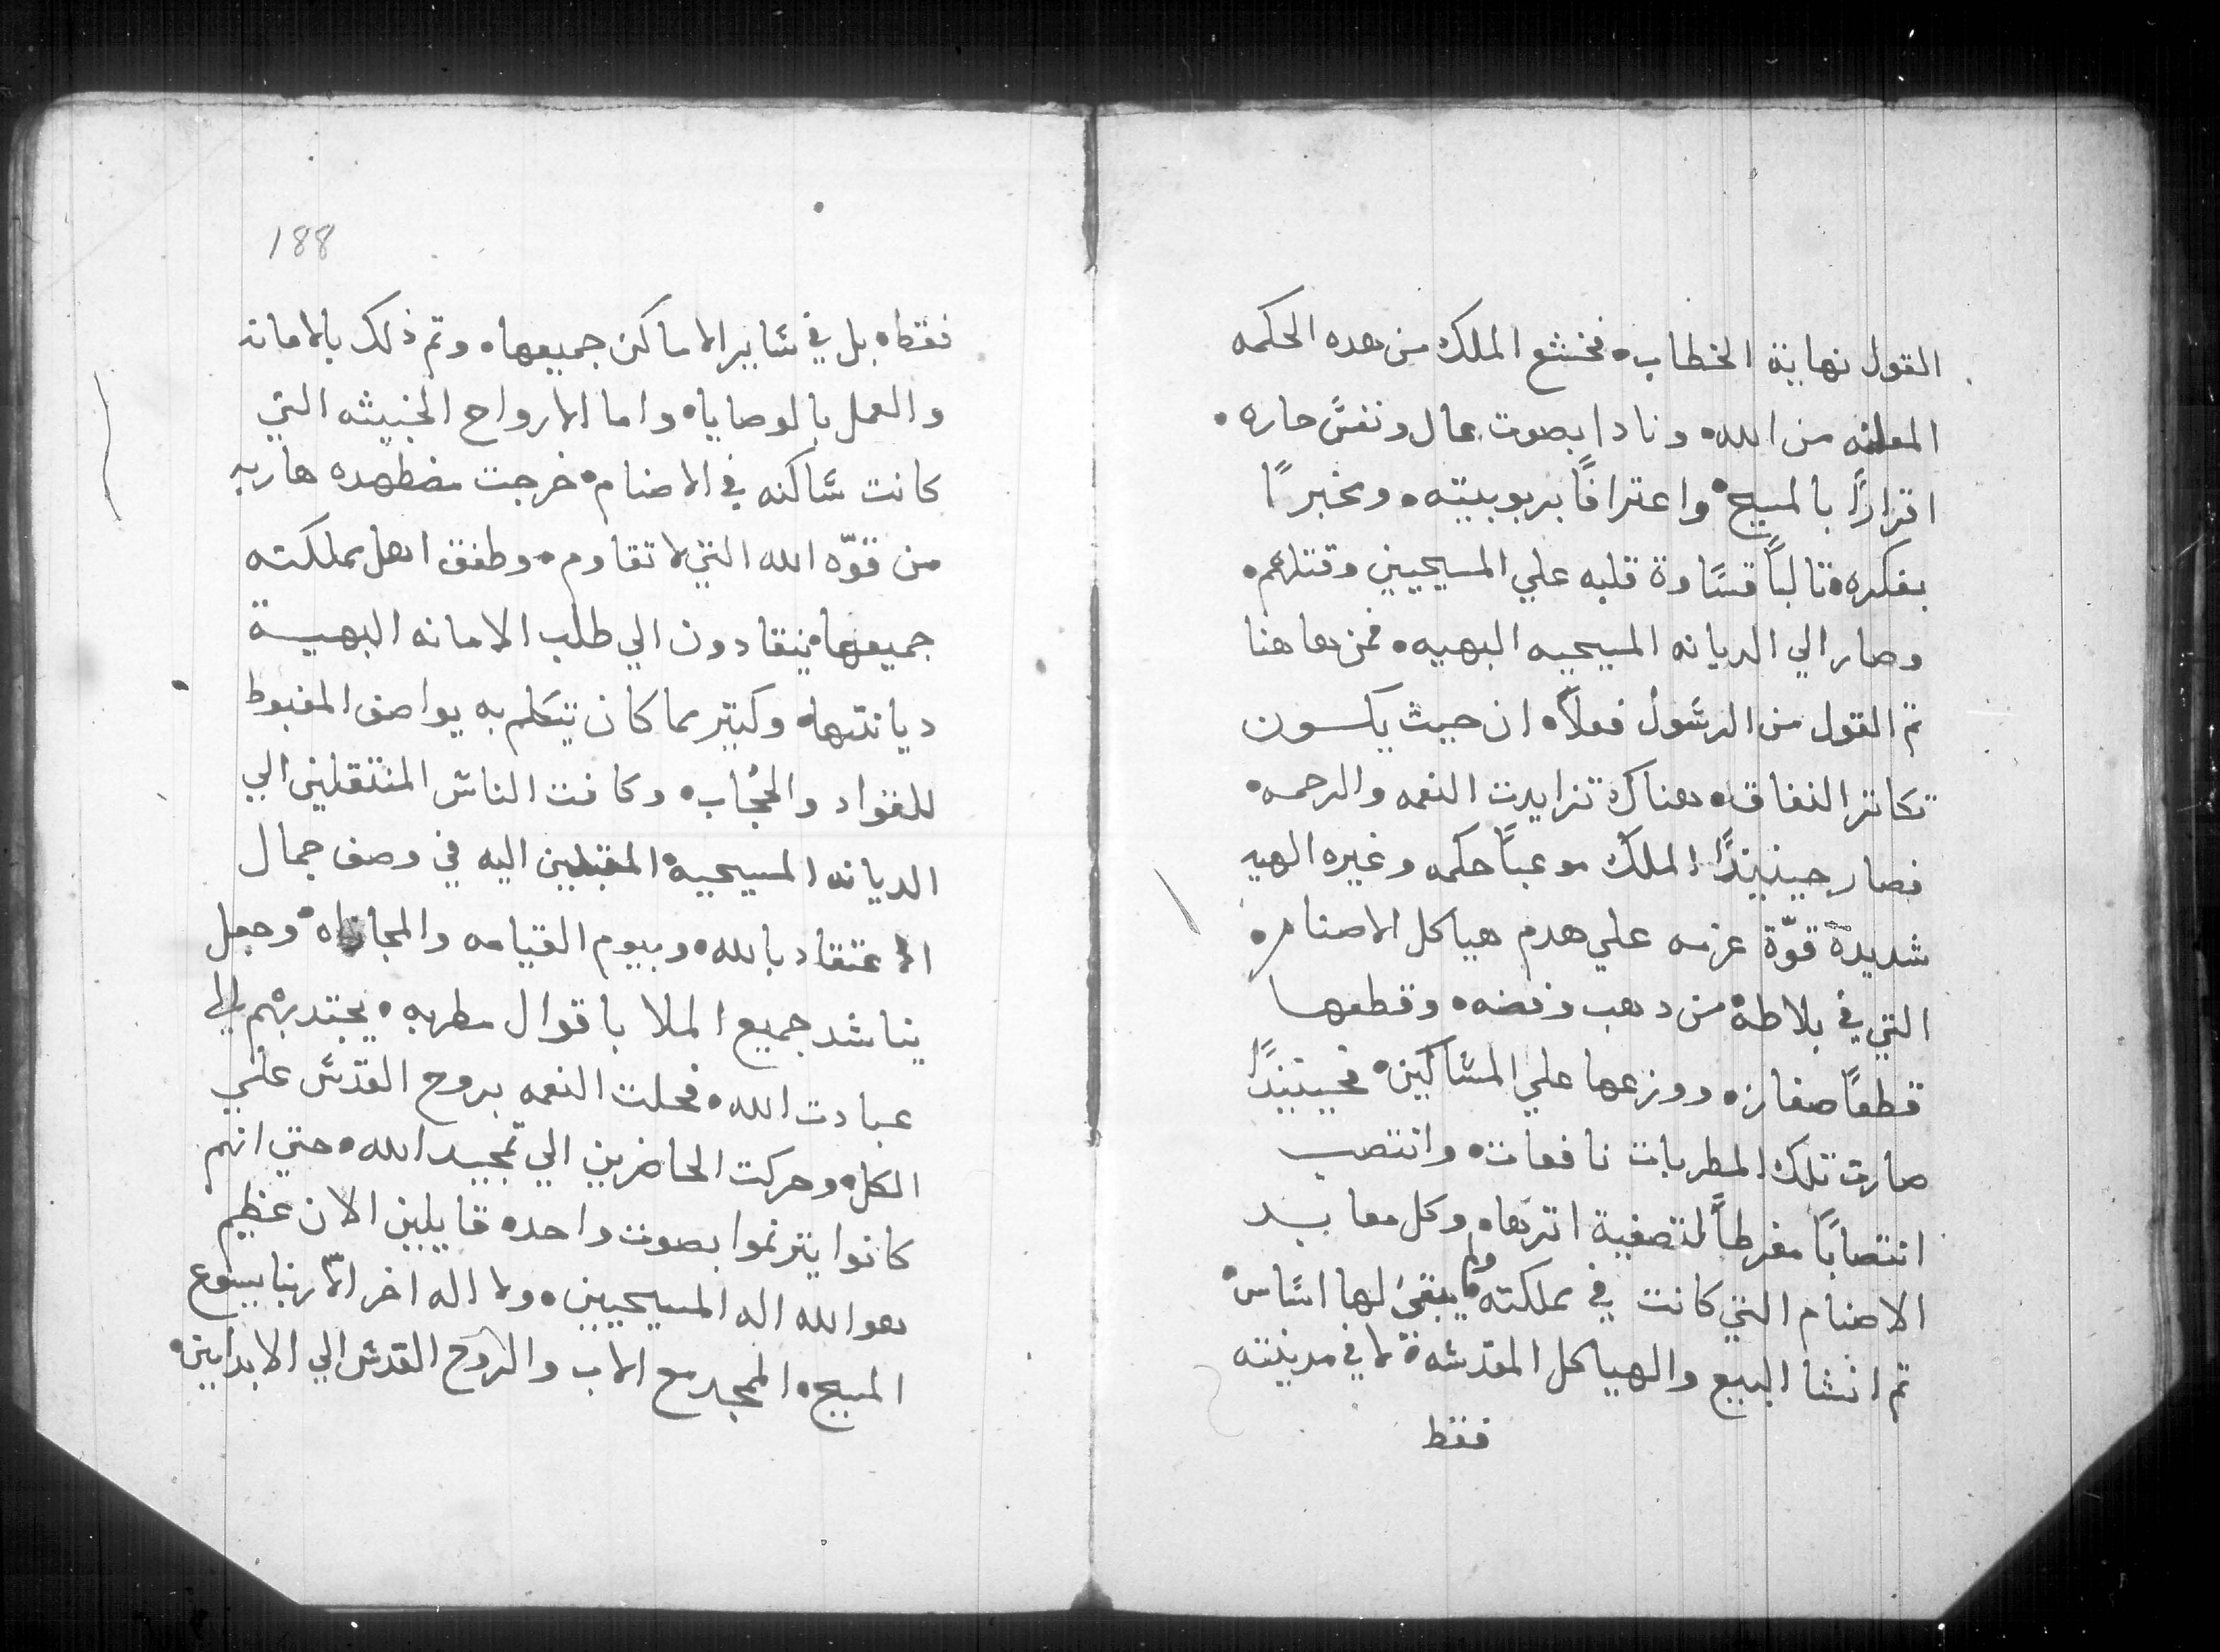 القول نهاية الخطاب. فخشع الملك من هده الحكمه
المعلنه من الله. ونادا بصوت عال ونفس حاره.
اقرارًا بالمسيح. واعترافًا بربوبيته. ومخبرًا
بفكره. تالبًا قساوة قلبه علي المسيحيين وقتلهم.
وصار الي الديانه المسيحيه البهيه. فمن هاهنا
تم القول من الرسول فعلاً. ان حيث يكسون
تكاثر النفاق. هناك تزايدت النعمه والرحمه.
فصار حينيندًا الملك موعبًا حكمه وغيره الهيه
شديدة قوّة عزمه علي هدم هياكل الاصنام.
التي في بلاطه. من دهب وفضه. وقطعها
قطعًا صغاز. ووزعها علي المساكين. فحينيندًا
صارت تلك المطربات نافعات. وانتصب
انتصابًا مفرطًا لتصفية اترها. وكل معابد
الاصنام التي كانت في مملكته. ولم يبقي لها اساس.
تم انشا البيع والهياكل المقدسه. لا في مدينته
فقط
188
فقط. بل في ساير الاماكن جميعها. وتم ذلك بالامانه
والعمل بالوصايا. واما الارواح الخبيثه التي
كانت ساكنه في الاصنام. خرجت مضطهده هاربه
من قوّه الله التي لا تقاوم. وطفق اهل مملكته
جميعها. ينقادون الي طلب الامانه البهية
ديانتها. وكتير مما كان يتكلم به يواصف المغبوط
للقواد والحُجاب. وكانت الناس المنتقلين الي
الديانه المسيحية. المقبلين اليه في وصف جمال
الاعتقاد بالله. وبيوم القيامه والمجازاه. وجعل
يناشد جميع الملا باقوال مطربه. يجتدبهم الي
عبادت الله. فحلت النعمه بروح القدس علي
الكل. وحركت الحاضرين الي تمجيد الله. حتي انهم
كانوا يترنموا بصوت واحده قايلين الان عظيم
هو الله اله المسيحيين. ولا اله اخر الاّ ربنا يسوع
المسيح. الممجد مع الاب والروح القدس الي الابدايين.